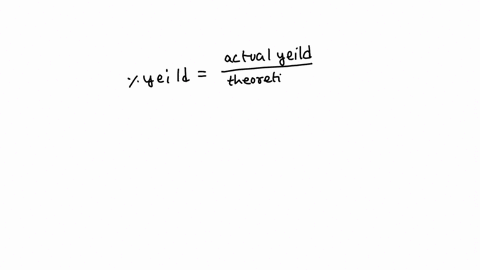 % yeild = actual yeild
theoreti